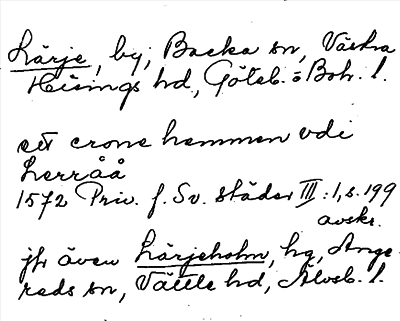 Lärje, by, Backa sn, Västra
Hisings hd, Göteb. o Boh. l.
ett crone hemmen vdi
Lerråå
1572 Priv. f. Sv. städer III:1, s. 199
avskr.
jfr även Lärjeholm, hg, Ange-
reds sn, Vättle hd, Älvsb. l.